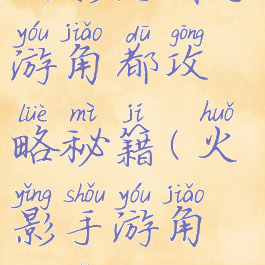 yóu jiǎo dū gōng
游角都攻
lüè mì jí huǒ
略秘籍(火
yǐng shǒu yóu jiǎo
影手游角